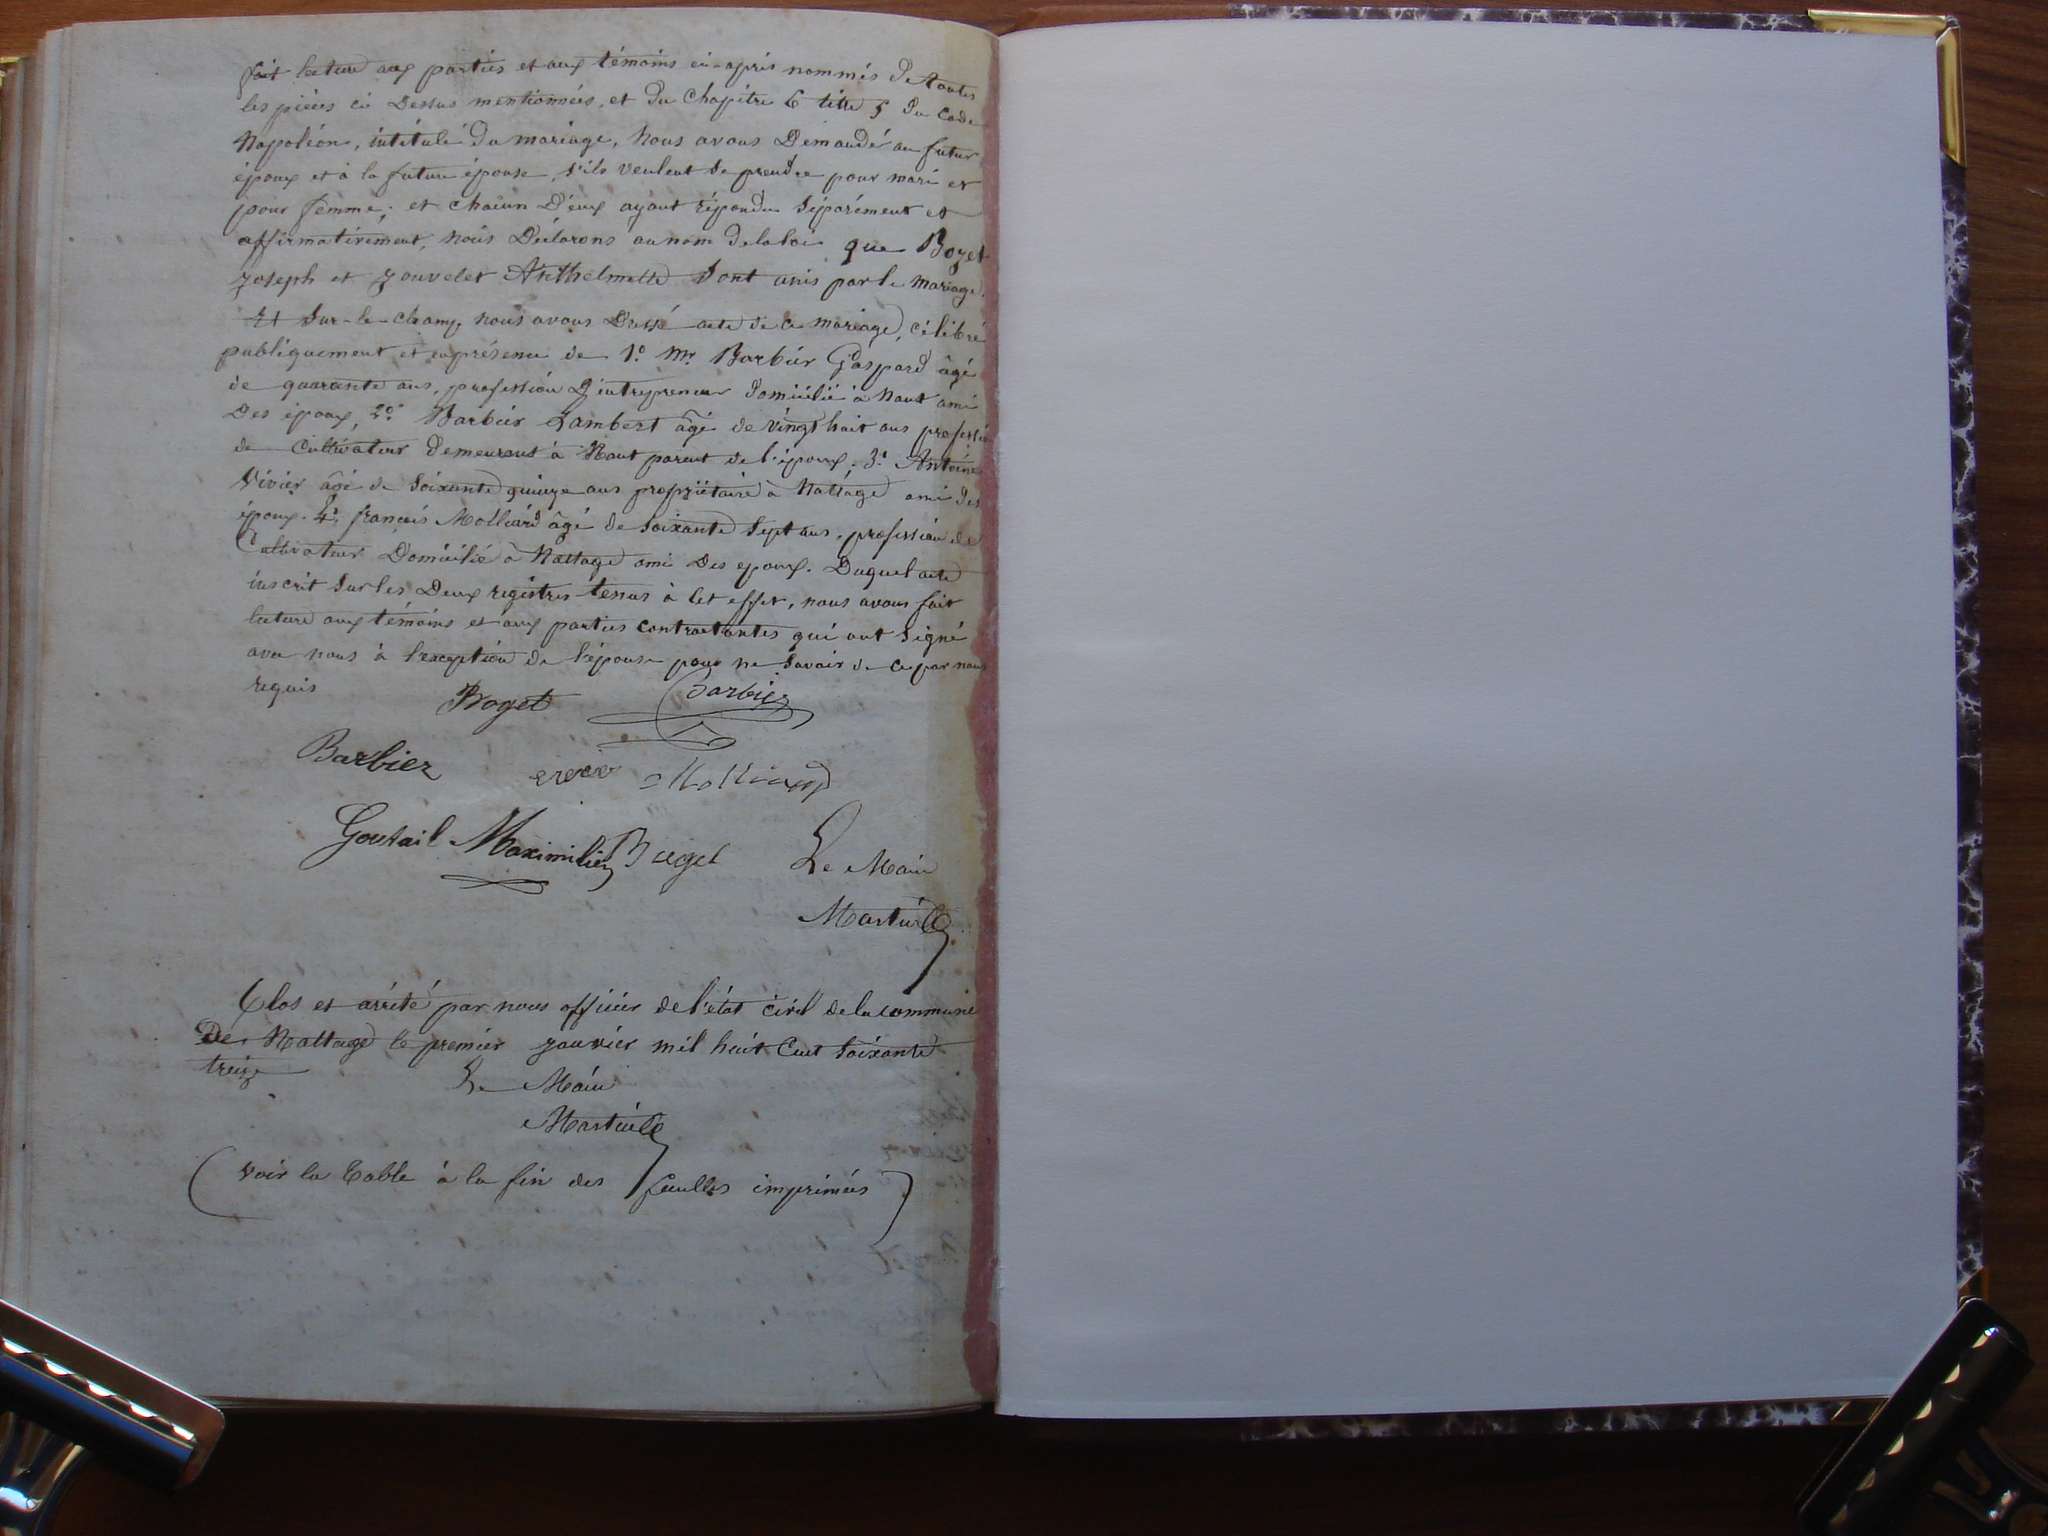 fait lecture aux parties et aux témoins ci-après nommés de toutes
les pièces ci dessus mentionnées, et du chapitre 6 titre 5 du code
Napoléon, intitulé du mariage, nous avons demandés au futur
époux et à la future épouse, s'ils veulent se prendre pour mari et
pour femme; et chacun d'eux ayant répondu séparément et
affirmativement, nous déclarons au nom de la loi que Boget
Joseph et Jouvelet Anthelmette sont unis par le mariage.
Et sur-le-champ nous avons dressé acte de ce mariage, célébré
publiquement et en présence de 1º Mr Barbier Gaspard âgé
de quarante ans, profession d'entrepreneur domicilié à Nant ami
des époux, 2º Barbier Lambert âgé de vingt huit ans profession
de cultivateur demeurant à Nant parent de l'époux, 3º Antoine
Vivier âgé de soixante quinze ans propriétaire à Nattage ami des
époux. 4º françois Molliard âgé de soixante sept ans, profession de
Cultivateur domicilié à Nattage ami des époux. Duquel acte
inscrit sur les deux registres tenus à cet effet, nous avons fait
lecture aux témoins et aux parties contractantes qui ont signé
avec nous à l'exception de l'épouse pour ne savoir de ce par nous
requis
Boget Barbier
Barbier Molliard
Goutail Maximilien Buget Le Maire
Martin
Clos et arrêté par nous officier de l'état civil de la commune
De Nattage le premier janvier mil huit cent soixante
treize
Le Maire
Martin
(voir la table à la fin des feuilles imprimées)